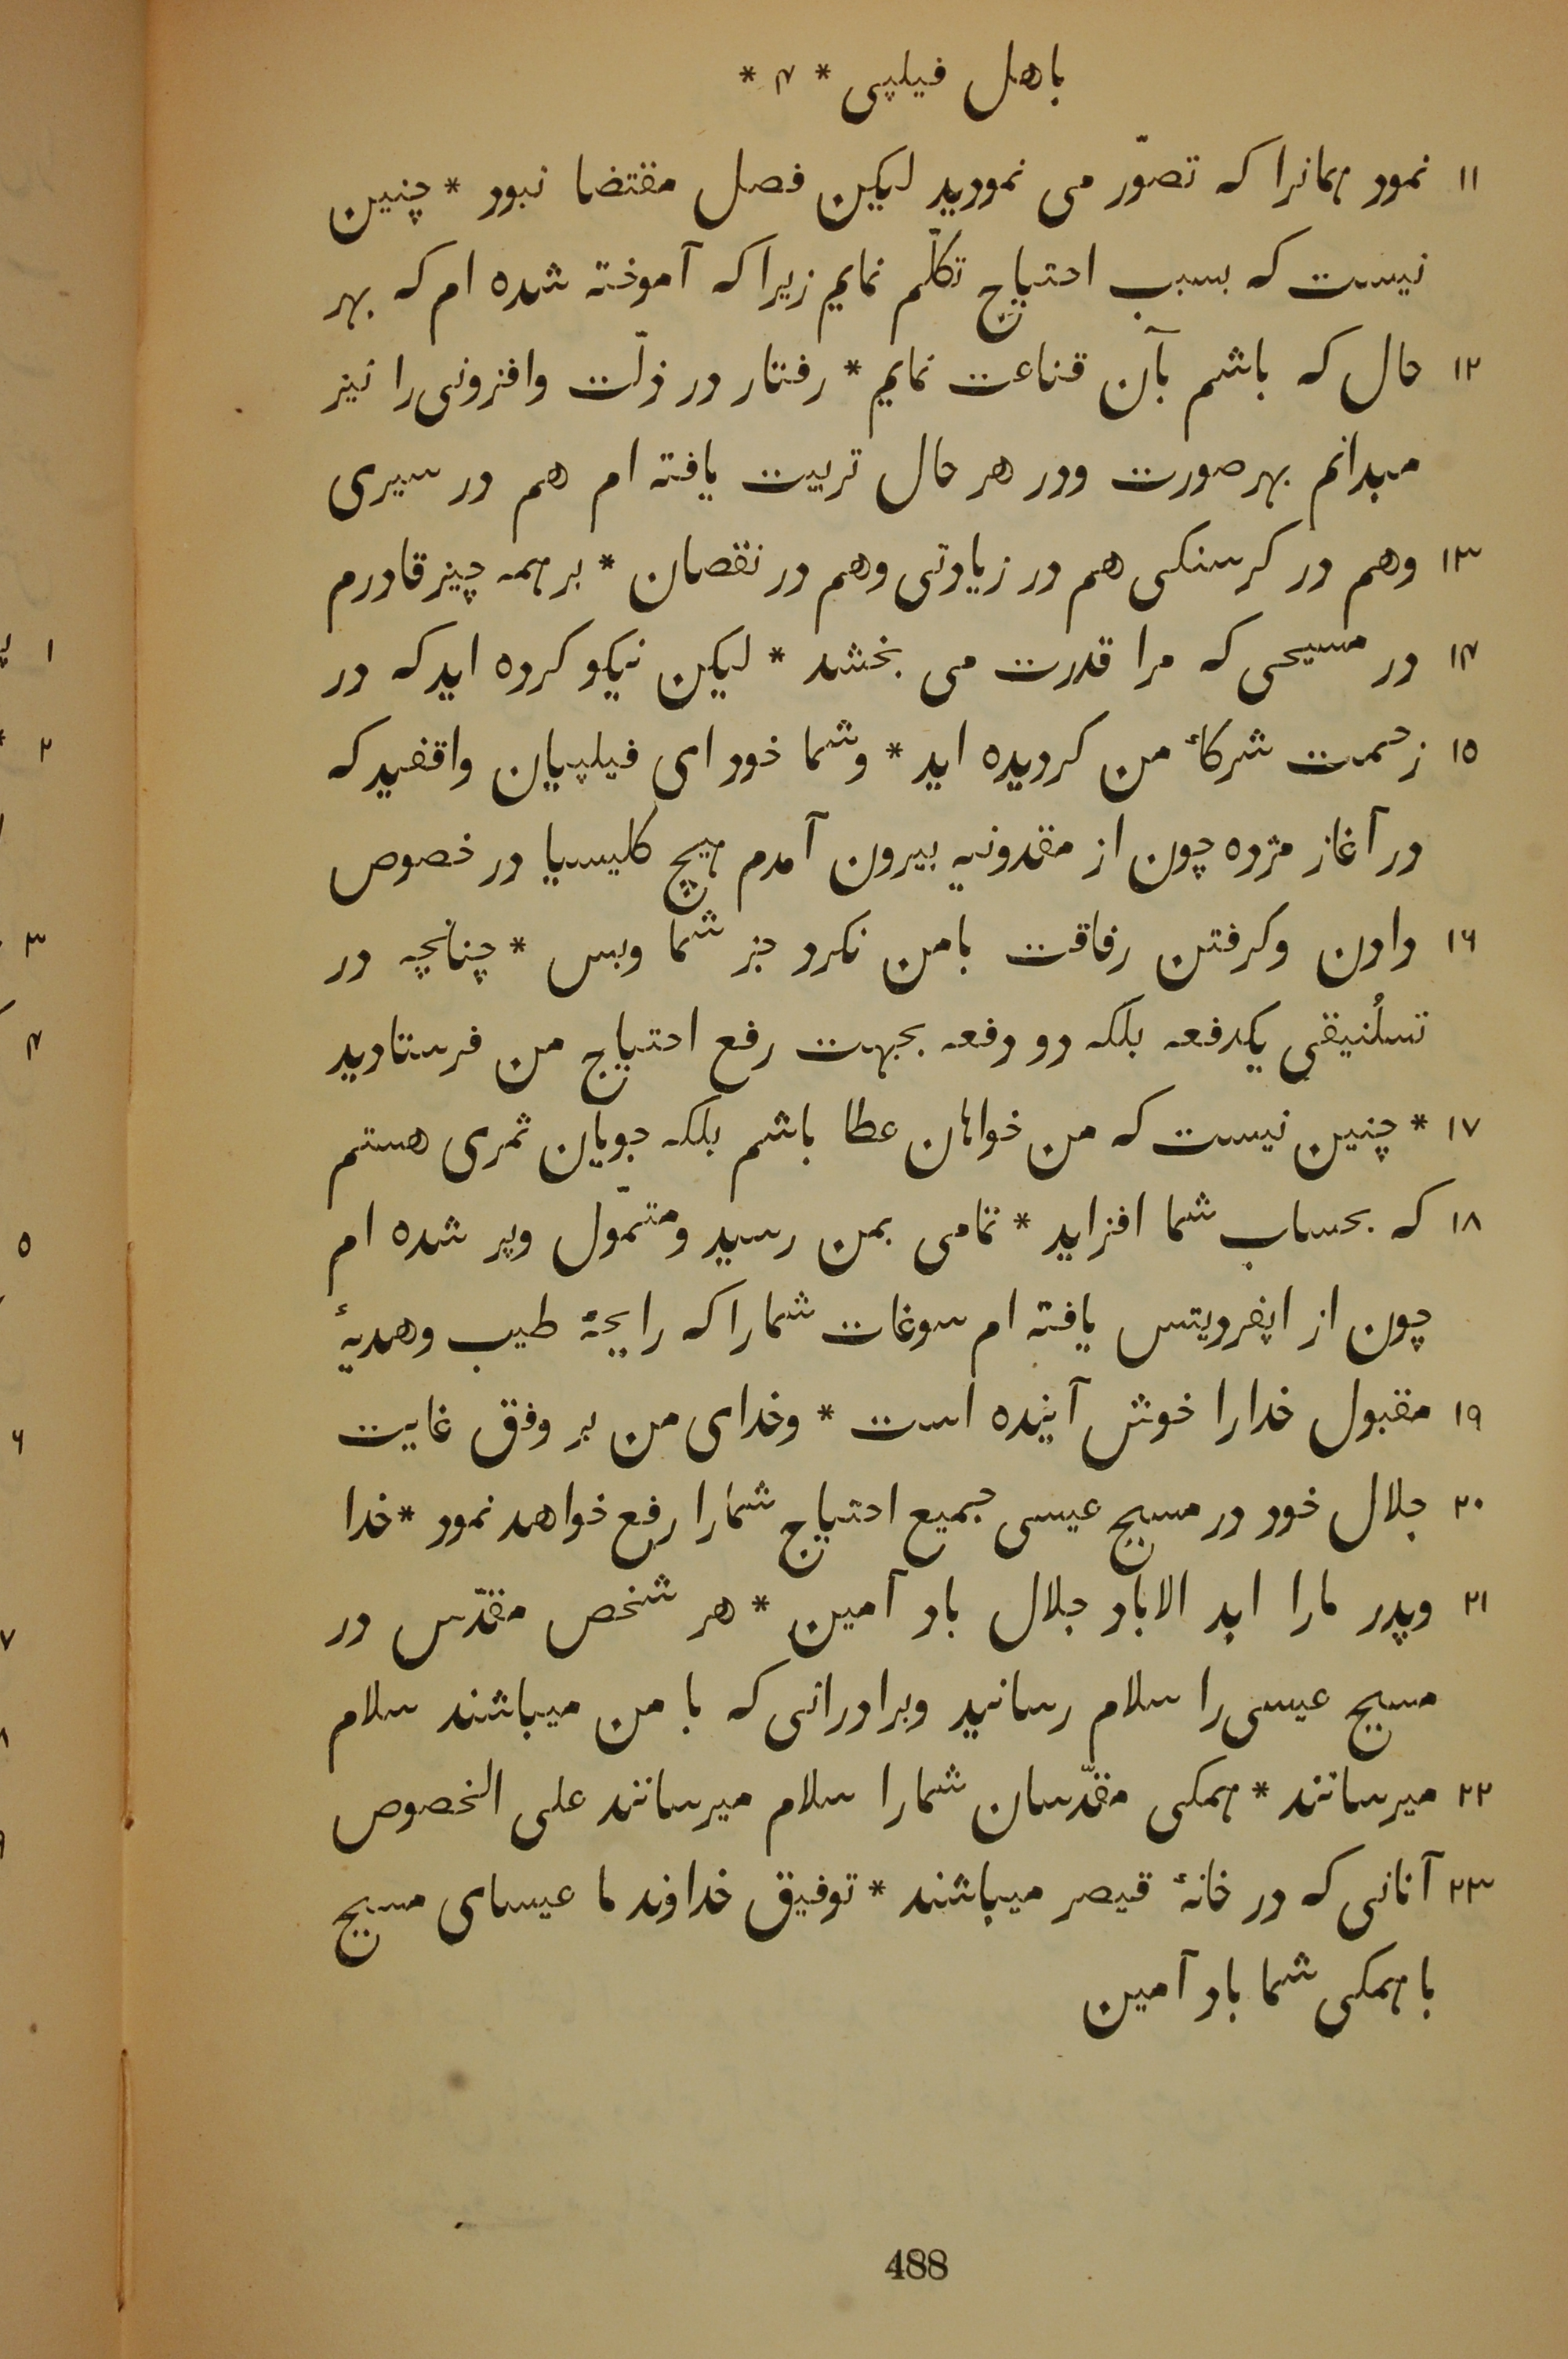 باهل فیلپی * ۴ *
۱۱ نمود همانرا که تصوّر می نمودید لیکن فصل مقتضا نبود * چنین
نیست که بسبب احتیاج تکلّم نمایم زیرا که آموخته شده ام که بهر
۱۲ حال که باشم بآن قناعت نمایم * رفتار در ذلّت وافزونی را نیز
میدانم بهر صورت ودر هر حال تربیت یافته ام هم در سیری
۱۳ وهم در کرسنکی هم در زیادتی وهم در نقصان * بر همه چیز قادرم
۱۴ در مسیحی که مرا قدرت می بخشد * لیکن نیکو کرده اید که در
۱۵ زحمت شرکاٴ من کردیده اید * وشما خود ای فیلپیان واقفید که
در آغاز مژده چون از مقدونیه بیرون آمدم هیچ کلیسیا در خصوص
۱۶ دادن وکرفتن رفاقت بامن نکرد جز شما وبس * چنانچه در
تسلُنیقی یکدفعه بلکه دو دفعه بجهت رفع احتیاج من فرستادید
۱۷ * چنین نیست که من خواهان عطا باشم بلکه جویان ثمری هستم
۱۸ که بحساب شما افزاید * تمامی بمن رسید ومتموّل وپر شده ام
چون از اپفرودیتس یافته ام سوغات شمارا که رایحهٔ طیب وهدیهٔ
۱۹ مقبول خدارا خوش آینده است * وخدای من بر وفق غایت
۲۰ جلال خود در مسیح عیسی جمیع احتیاج شمارا رفع خواهد نمود * خدا
۲۱ وپدر مارا ابد الاباد جلال باد آمین * هر شخص مقدّس در
مسیح عیسی را سلام رسانید وبرادرانی که با من میباشند سلام
۲۲ میرسانند * همکی مقدّسان شمارا سلام میرسانند علی الخصوص
۲۳ آنانی که در خانهٔ قیصر میباشند * توفیق خداوند ما عیسای مسیح
با همکی شما باد آمین
488